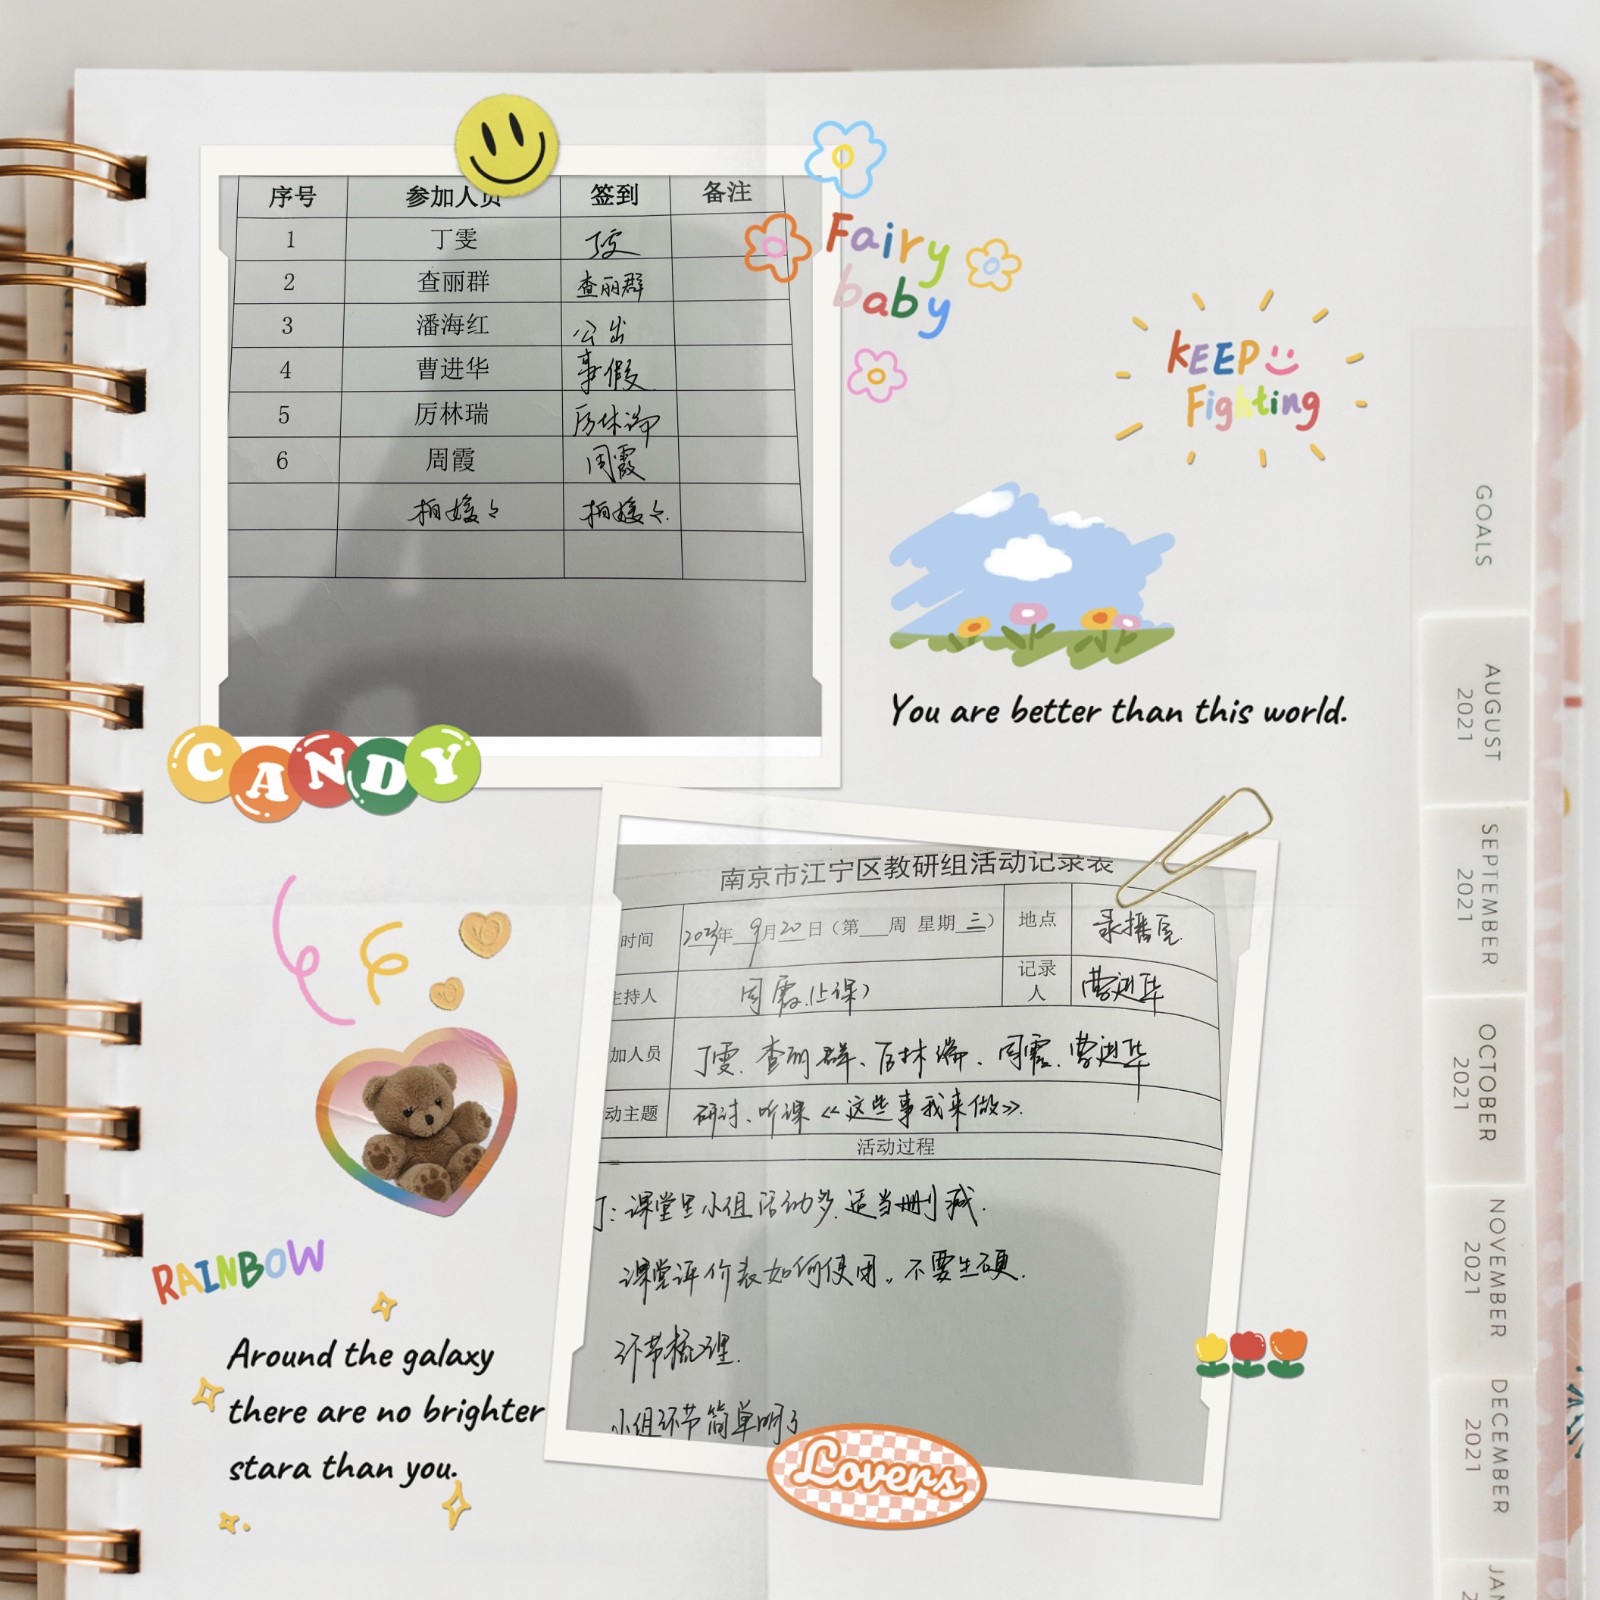 序号 参加人员 签到 备注
1 丁雯 丁雯
2 查丽群 查丽群
3 潘海红 公出
4 曹进华 事假
5 厉林瑞 厉林瑞
6 周霞 周霞
柏媛々 柏媛々
Fairy
baby
KEEP
Fighting
You are better than this world.
CANDY
南京市江宁区教研组活动记录表
时间 2023年 9月20日（第 周 星期 三） 地点 录播室
主持人 周霞(上课) 记录人 曹进华
加人员 丁雯、查丽群、厉林瑞、周霞、曹进华
动主题 研讨、听课《这些事我来做》
活动过程
丁：课堂里小组活动多,适当删减.
课堂评价表如何使用。不要生硬.
环节梳理.
小组环节简单明了
RAINBOW
Around the galaxy
there are no brighter
stara than you.
Lovers
GOALS
AUGUST
2021
SEPTEMBER
2021
OCTOBER
2021
NOVEMBER
2021
DECEMBER
2021